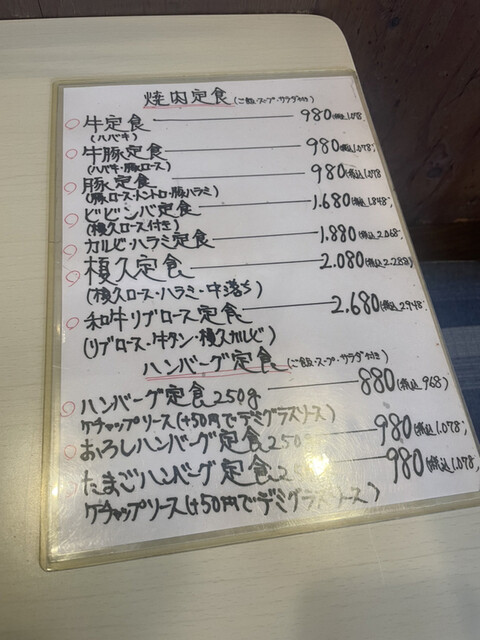 焼肉定食(ご飯・スープ・サラダ付)
牛定食 980(税込1.078)
(ハバキ)
牛豚定食 980(税込1.078)
(ハバキ・豚ロース)
豚定食 980(税込1.078
(豚ロース・トントロ・豚ハラミ)
ビビンバ定食 1.680(税込1.848)
(榎久ロース付き)
カルビ・ハラミ定食 1.880(税込2.068)
榎久定食 2.080(税込2.288)
(榎久ロース・ハラミ・中落ち)
和牛リブロース定食 2.680(税込2948)
(リブロース・牛タン・榎久カルビ)
ハンバーグ定食(ご飯・スープ・サラダ付き)
ハンバーグ定食250g 880(税込968)
ケチャップソース(+50円でデミグラスソース)
おろしハンバーグ定食250g 980(税込1.078)
たまごハンバーグ定食 980(税込1.078)
ケチャップソース(+50円でデミグラスソース)